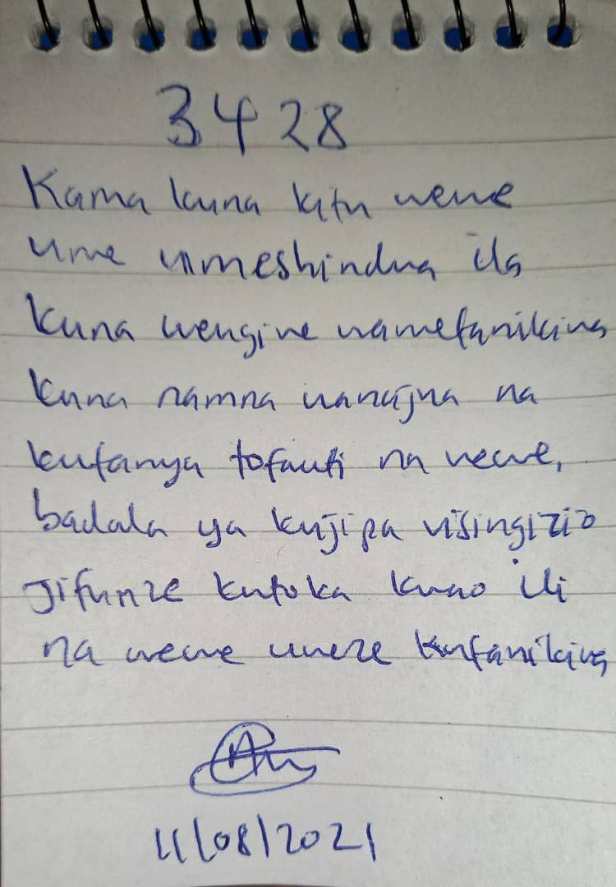 3428
Kama kuna kitu wewe
ume umeshindwa ila
kuna wengine wamefanikiwa
kuna namna wanajua na
kufanya tofauti na wewe,
badala ya kujipa visingizio
jifunze kutoka kwao ili
na wewe uweze kufanikiwa
11/08/2021